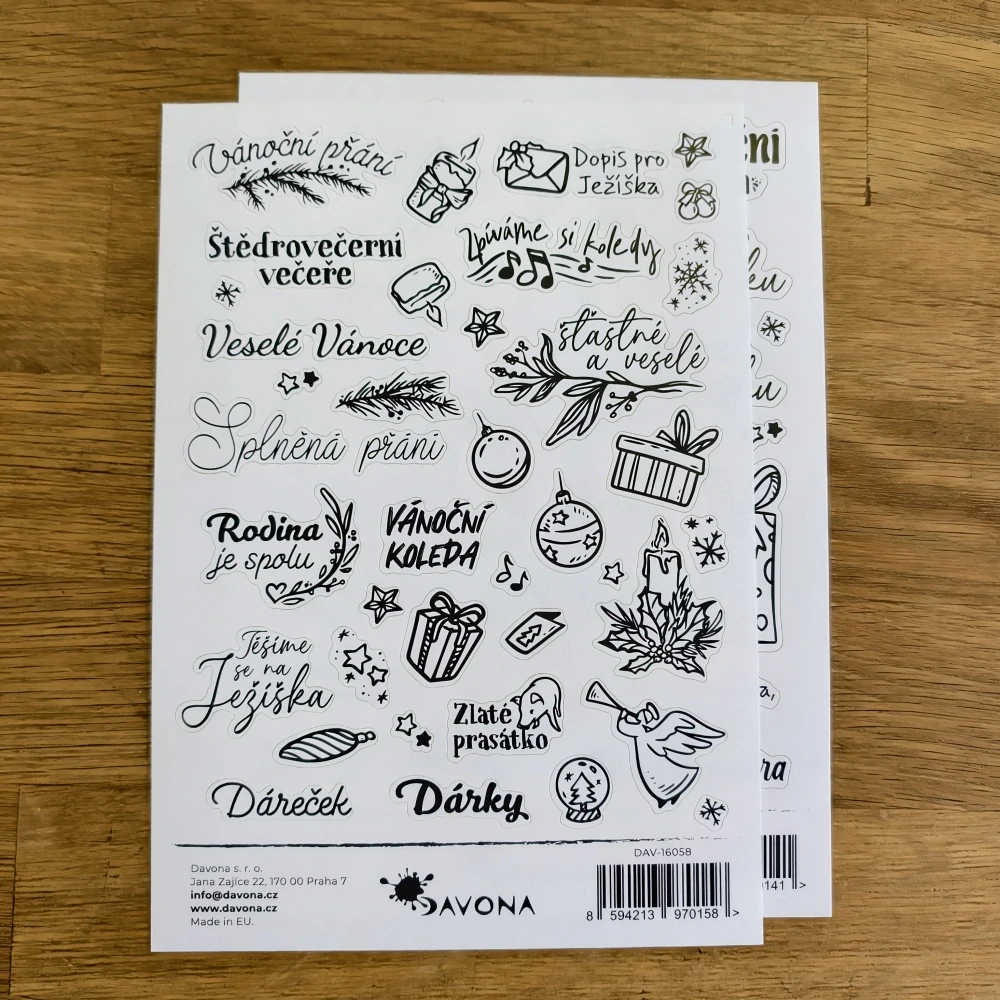 Vánoční přání
Dopis pro
Ježíška
Štědrovečerní
večeře
Zpíváme si koledy
Veselé Vánoce
šťastné
a veselé
Splněná přání
Rodina
je spolu
VÁNOČNÍ
KOLEDA
Těšíme
se na
Ježíška
Zlaté
prasátko
Dáreček
Dárky
Davona s. r. o.
Jana Zajíce 22, 170 00 Praha 7
info@davona.cz
www.davona.cz
Made in EU.
DAVONA
DAV-16058
8 594213 970158 >